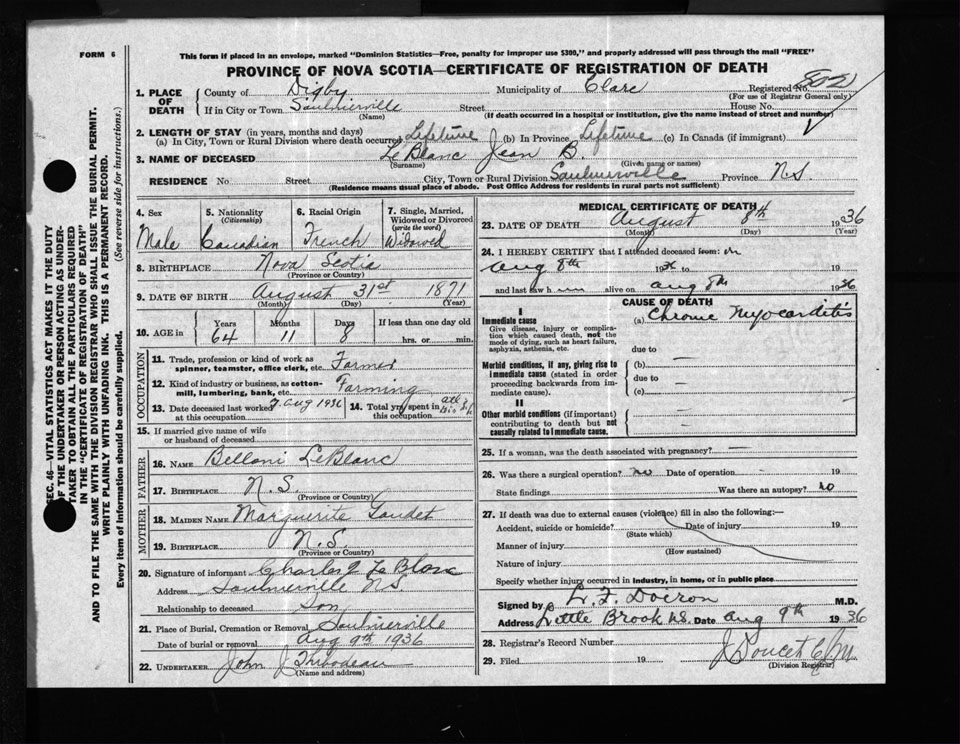 FORM 6
This form if placed in an envelope, marked "Dominion Statistics—Free, penalty for improper use $300," and properly addressed will pass through the mail "FREE"
PROVINCE OF NOVA SCOTIA—CERTIFICATE OF REGISTRATION OF DEATH
1. PLACE OF DEATH
County of Digby Municipality of Clare Registered No. 802
(For use of Registrar General only)
If in City or Town Saulnierville Street House No.
(Name) (If death occurred in a hospital or institution, give the name instead of street and number)
2. LENGTH OF STAY (in years, months and days)
(a) In City, Town or Rural Division where death occurred Lifetime (b) In Province Lifetime (c) In Canada (if immigrant)
3. NAME OF DECEASED Le Blanc Jean B.
(Surname) (Given name or names)
RESIDENCE No. Street City, Town or Rural Division Saulnierville Province N.S.
(Residence means usual place of abode. Post Office Address for residents in rural parts not sufficient)
4. Sex 5. Nationality (Citizenship) 6. Racial Origin 7. Single, Married, Widowed or Divorced (write the word)
Male Canadian French Widowed
8. BIRTHPLACE Nova Scotia
(Province or Country)
9. DATE OF BIRTH August 31st 1871
(Month) (Day) (Year)
10. AGE in Years Months Days If less than one day old
64 11 8 hrs. or min.
OCCUPATION
11. Trade, profession or kind of work as spinner, teamster, office clerk, etc. Farmer
12. Kind of industry or business, as cotton-mill, lumbering, bank, etc. Farming
13. Date deceased last worked at this occupation Aug 1936 14. Total yrs. spent in this occupation
15. If married give name of wife or husband of deceased
FATHER
16. NAME Belloni LeBlanc
17. BIRTHPLACE N.S.
(Province or Country)
MOTHER
18. MAIDEN NAME Marguerite Gaudet
19. BIRTHPLACE N.S.
(Province or Country)
20. Signature of informant Charles J Le Blanc
Address Saulnierville N.S.
Relationship to deceased Son
21. Place of Burial, Cremation or Removal Saulnierville
Date of burial or removal Aug 9th 1936
22. UNDERTAKER John J Thibodeau
(Name and address)
MEDICAL CERTIFICATE OF DEATH
23. DATE OF DEATH August 8th 1936
(Month) (Day) (Year)
24. I HEREBY CERTIFY that I attended deceased from: on
Aug 8th 1936 to 19
and last saw h im alive on Aug 8th 1936
CAUSE OF DEATH
I
Immediate cause (a) Chronic Myocarditis
Give disease, injury or complication which caused death, not the mode of dying, such as heart failure, asphyxia, asthenia, etc.
due to —
Morbid conditions, if any, giving rise to immediate cause (stated in order proceeding backwards from immediate cause).
(b)
due to —
(c)
II
Other morbid conditions (if important) contributing to death but not causally related to immediate cause.
25. If a woman, was the death associated with pregnancy? —
26. Was there a surgical operation? no Date of operation — 19
State findings Was there an autopsy? no
27. If death was due to external causes (violence) fill in also the following:—
Accident, suicide or homicide? Date of injury 19
(State which)
Manner of injury
(How sustained)
Nature of injury
Specify whether injury occurred in industry, in home, or in public place
Signed by L. F. Doiron M.D.
Address Little Brook N.S. Date Aug 9th 1936
28. Registrar's Record Number
29. Filed 19 J Doucet
(Division Registrar)
SEC. 46—VITAL STATISTICS ACT MAKES IT THE DUTY
OF THE UNDERTAKER OR PERSON ACTING AS UNDER-
TAKER TO OBTAIN ALL THE PARTICULARS REQUIRED
IN THE "CERTIFICATE OF REGISTRATION OF DEATH"
AND TO FILE THE SAME WITH THE DIVISION REGISTRAR WHO SHALL ISSUE THE BURIAL PERMIT.
WRITE PLAINLY WITH UNFADING INK. THIS IS A PERMANENT RECORD.
Every item of Information should be carefully supplied. (See reverse side for instructions.)